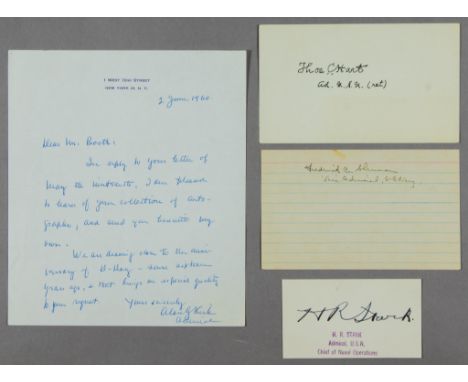 NEW YORK 21, N.Y.
2 June 1960
Dear Mr. Booth:
In reply to your letter of
May the nineteenth, I am pleased
to learn of your collection of auto-
graphs, and send you herewith my
own.
We are drawing close to the anni-
versary of D-Day – some sixteen
years ago, & that brings
to your request.
Yours sincerely,
Alan G Kirk
Admiral
Thos C Hart
Ad. U.S.N. (ret)
Frederick C. Sherman
Vice Admiral, U.S. Navy
H R Stark
H. R. STARK
Admiral, U.S.N.
Chief of Naval Operations